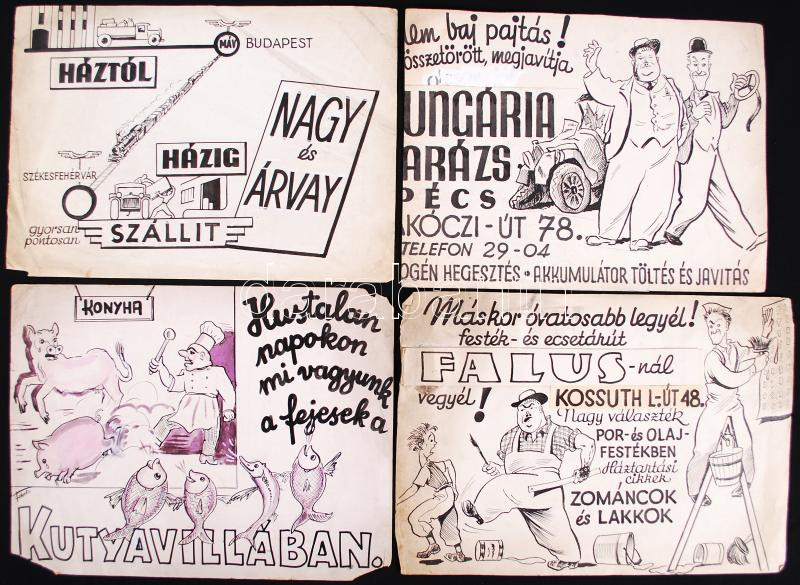 MÁV BUDAPEST
HÁZTÓL
NAGY
és
ÁRVAY
SZÉKESFEHÉRVÁR
HÁZIG
gyorsan
pontosan
SZÁLLIT
em baj pajtás!
összetörött, megjavítja
UNGÁRIA
ARÁZS.
PÉCS
KÓCZI-ÚT 78.
TELEFON 29-04
OGÉN HEGESZTÉS · AKKUMULÁTOR TÖLTÉS ÉS JAVITÁS
KONYHA
Hustalan
napokon
mi vagyunk
a fejesek a
KUTYAVILLÁBAN.
Máskor óvatosabb legyél!
festék- és ecsetárút
FALUS-nál
vegyél!
KOSSUTH L-ÚT 48.
Nagy választék
POR- és OLAJ-
FESTÉKBEN
Háztartási
cikkek
ZOMÁNCOK
és LAKKOK